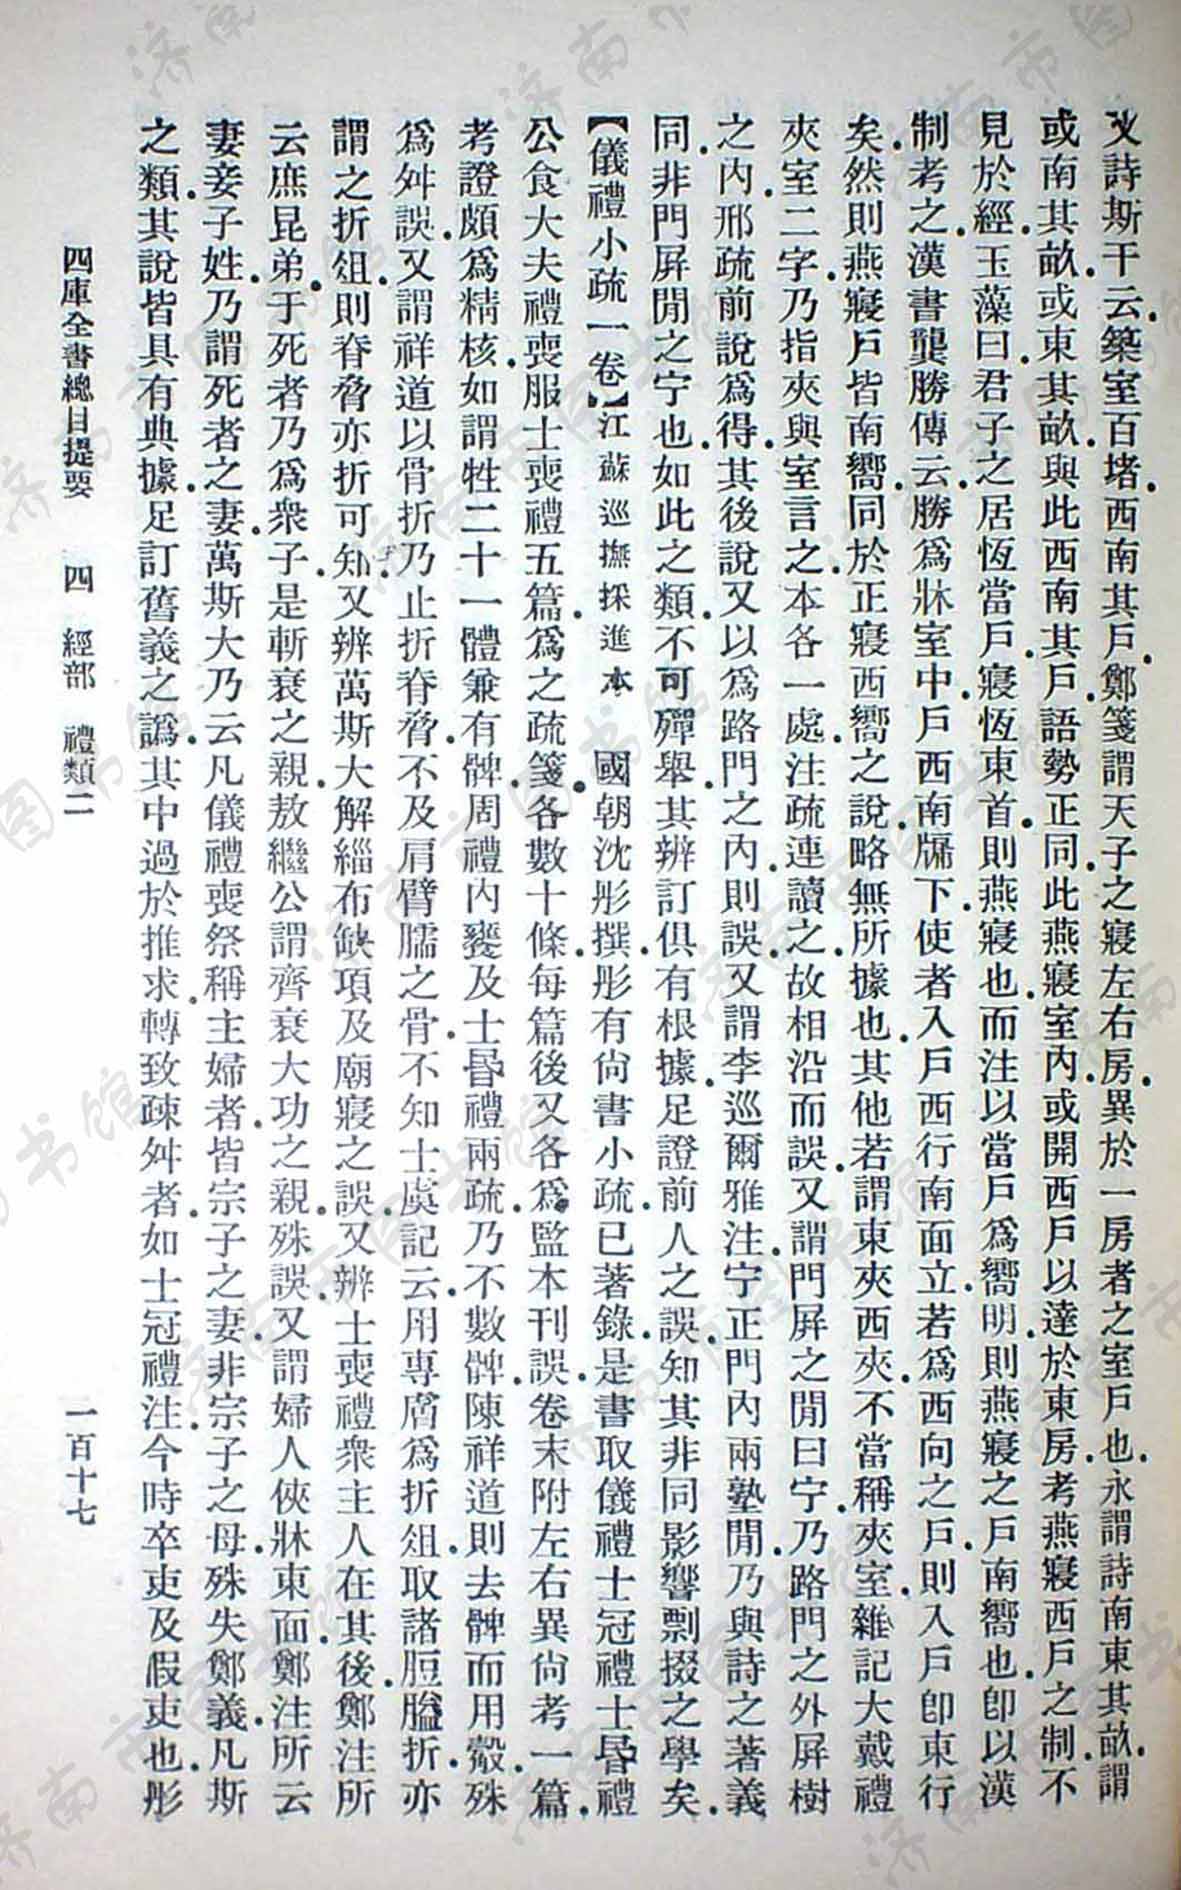 又詩斯干云築室百堵西南其戶鄭箋謂天子之寢左右房異於一房者之室戶也永謂詩南東其畝謂
或南其畝或東其畝與此西南其戶語勢正同此燕寢室內或開西戶以達於東房考燕寢西戶之制不
見於經玉藻曰君子之居恆當戶寢恆東首則燕寢也而注以當戶爲嚮明則燕寢之戶南嚮也卽以漢
制考之漢書龔勝傳云勝爲牀室中戶西南牖下使者入戶西行南面立若爲西向之戶則入戶卽東行
矣然則燕寢戶皆南嚮同於正寢西嚮之說略無所據也其他若謂東夾西夾不當稱夾室雜記大戴禮
夾室二字乃指夾與室言之本各一處注疏連讀之故相沿而誤又謂門屏之閒曰宁乃路門之外屏樹
之內邢疏前說爲得其後說又以爲路門之內則誤又謂李巡爾雅注宁正門內兩塾閒乃與詩之著義
同非門屏閒之宁也如此之類不可殫舉其辨訂俱有根據足證前人之誤知其非同影響剽掇之學矣
【儀禮小疏一卷】江蘇巡撫採進本 國朝沈彤撰彤有尙書小疏已著錄是書取儀禮士冠禮士昏禮
公食大夫禮喪服士喪禮五篇爲之疏箋各數十條每篇後又各爲監本刊誤卷末附左右異尙考一篇
考證頗爲精核如謂牲二十一體兼有髀周禮內饔及士昏禮兩疏乃不數髀陳祥道則去髀而用觳殊
爲舛誤又謂祥道以骨折乃止折脊脅不及肩臂臑之骨不知士虞記云用專膚爲折俎取諸脰膉折亦
謂之折俎則脊脅亦折可知又辨萬斯大解緇布缺項及廟寢之誤又辨士喪禮衆主人在其後鄭注所
云庶昆弟于死者乃爲衆子是斬衰之親敖繼公謂齊衰大功之親殊誤又謂婦人俠牀東面鄭注所云
妻妾子姓乃謂死者之妻萬斯大乃云凡儀禮喪祭稱主婦者皆宗子之妻非宗子之母殊失鄭義凡斯
之類其說皆具有典據足訂舊義之譌其中過於推求轉致疎舛者如士冠禮注今時卒吏及假吏也彤
四庫全書總目提要 四 經部 禮類二 一百十七